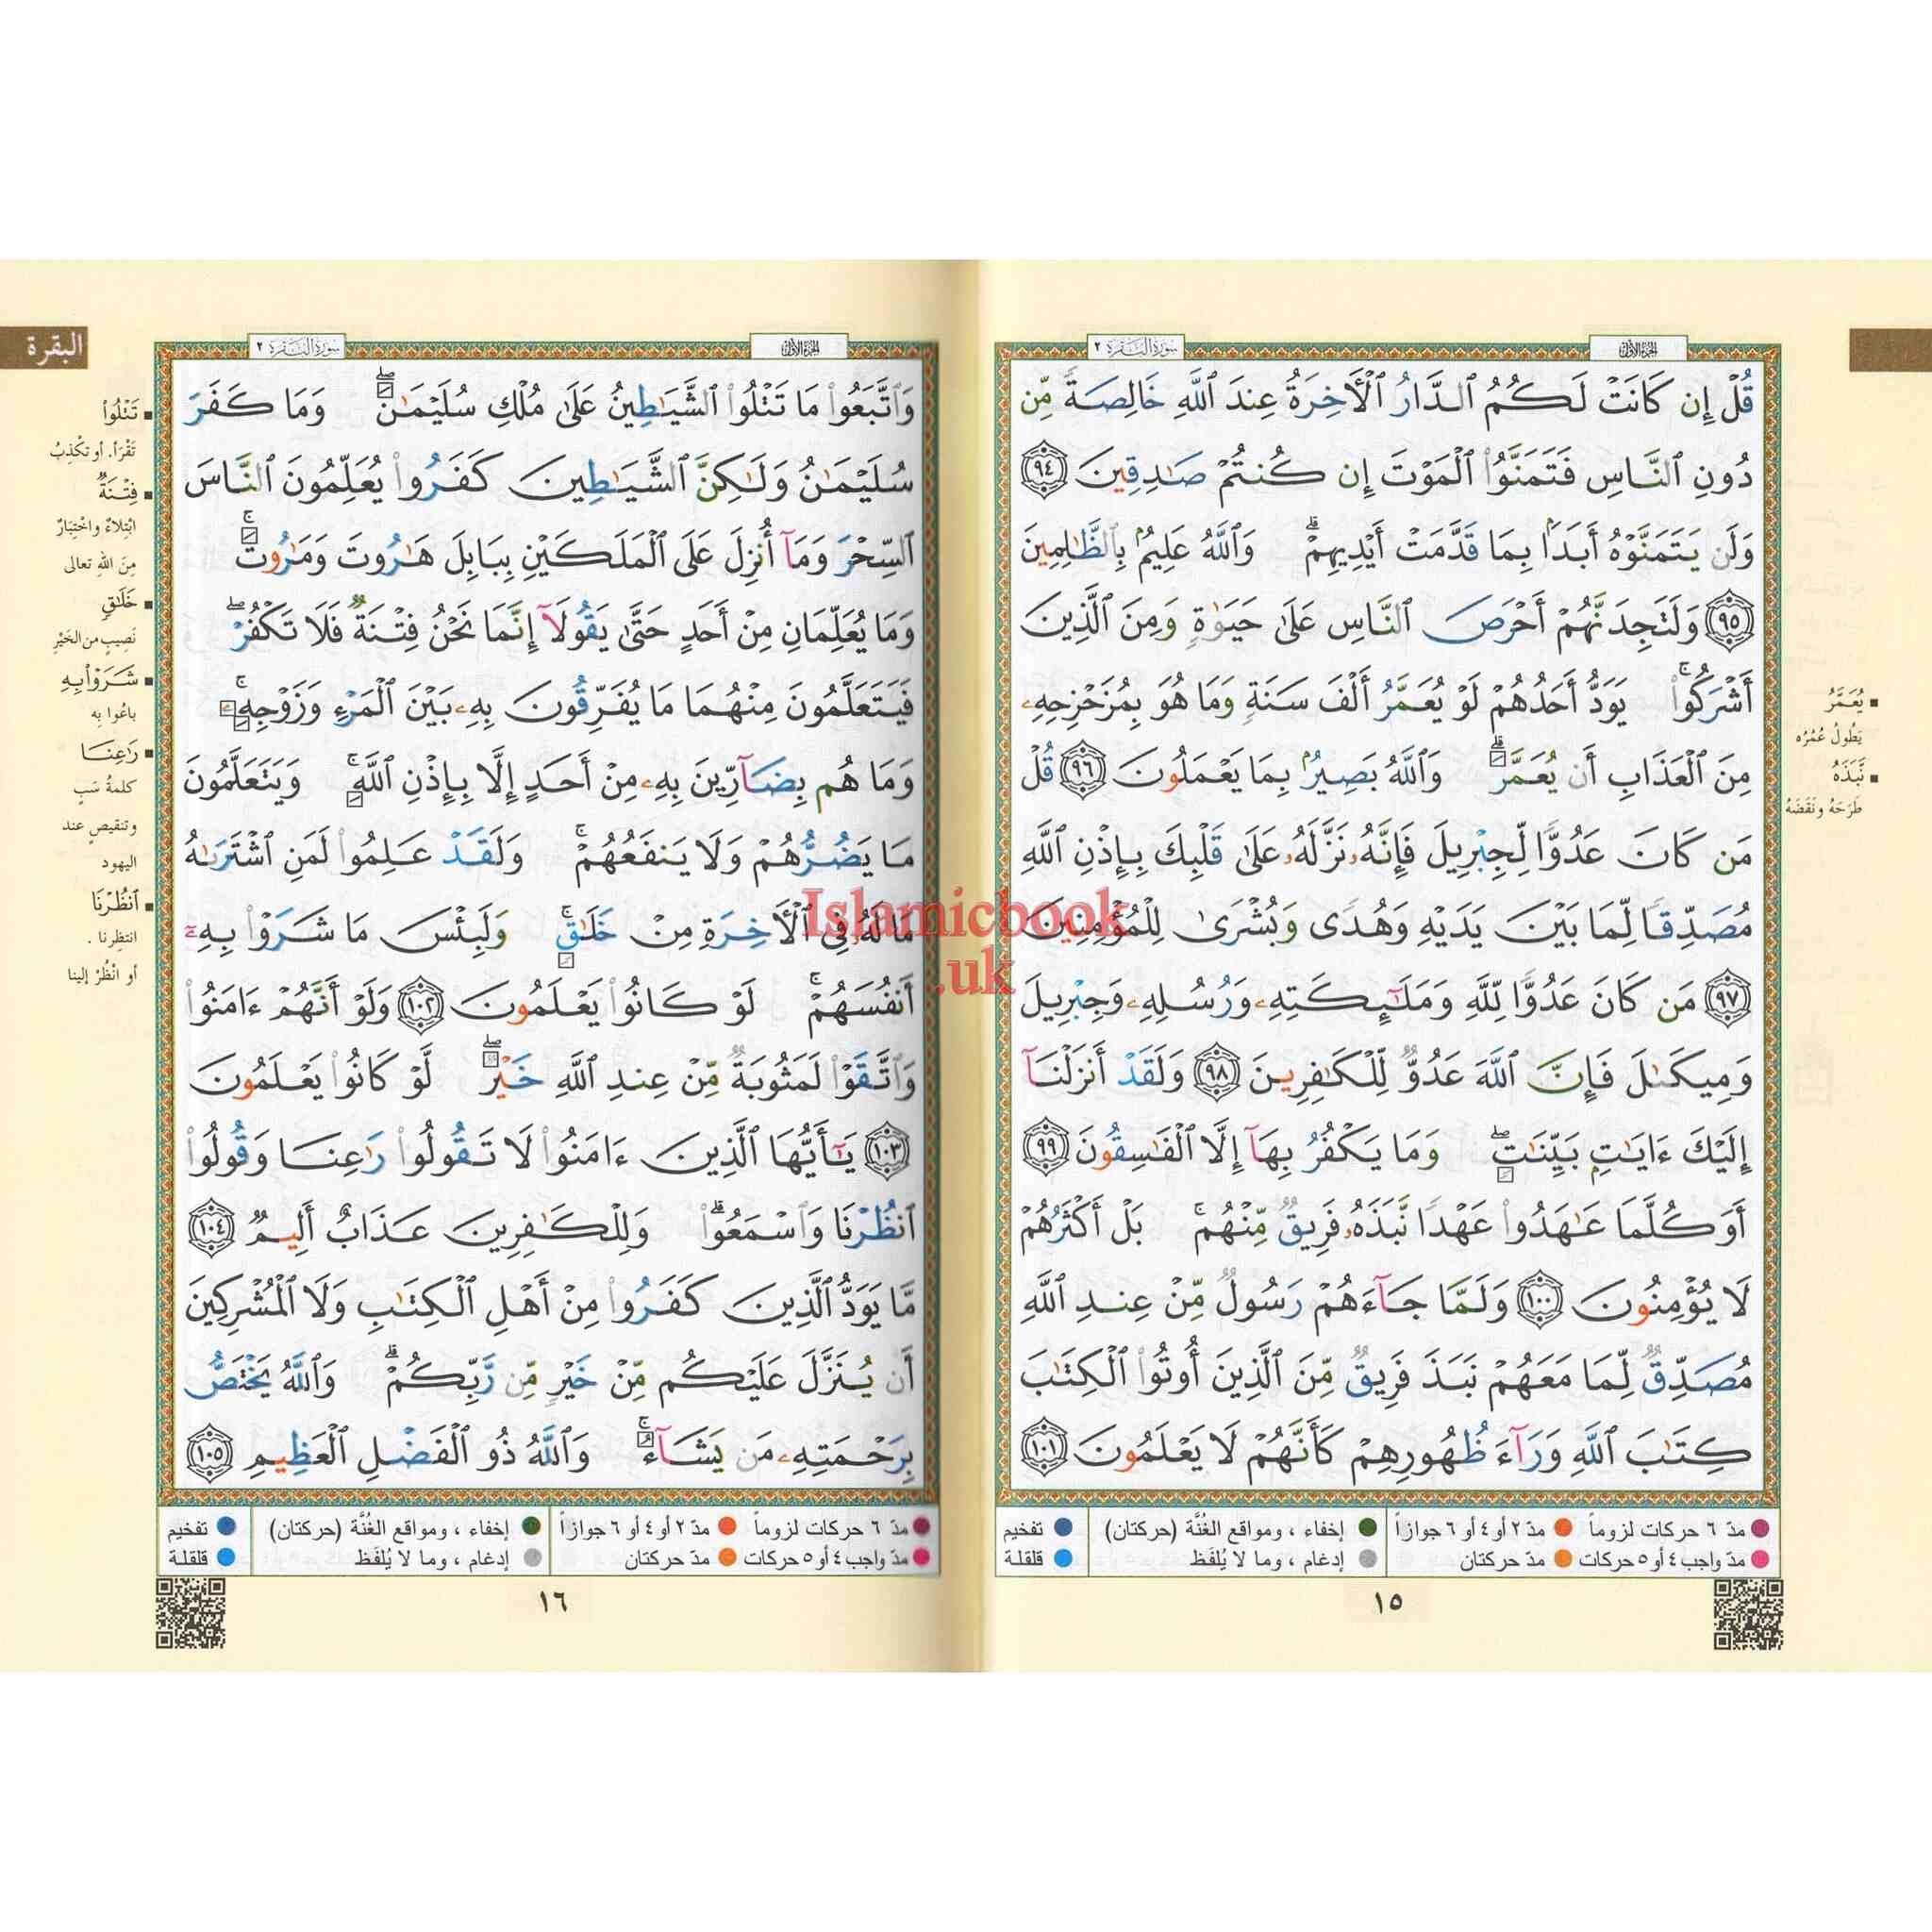 الجزء الأول
سورة البقرة ٢
قُلْ إِن كَانَتْ لَكُمُ ٱلدَّارُ ٱلْأَخِرَةُ عِندَ ٱللَّهِ خَالِصَةً مِّن
دُونِ ٱلنَّاسِ فَتَمَنَّوُا۟ ٱلْمَوْتَ إِن كُنتُمْ صَـٰدِقِينَ ٩٤
وَلَن يَتَمَنَّوْهُ أَبَدًۢا بِمَا قَدَّمَتْ أَيْدِيهِمْ ۗ وَٱللَّهُ عَلِيمٌۢ بِٱلظَّـٰلِمِينَ
٩٥ وَلَتَجِدَنَّهُمْ أَحْرَصَ ٱلنَّاسِ عَلَىٰ حَيَوٰةٍ وَمِنَ ٱلَّذِينَ
أَشْرَكُوا۟ ۚ يَوَدُّ أَحَدُهُمْ لَوْ يُعَمَّرُ أَلْفَ سَنَةٍ وَمَا هُوَ بِمُزَحْزِحِهِۦ
مِنَ ٱلْعَذَابِ أَن يُعَمَّرَ ۗ وَٱللَّهُ بَصِيرٌۢ بِمَا يَعْمَلُونَ ٩٦ قُلْ
مَن كَانَ عَدُوًّا لِّجِبْرِيلَ فَإِنَّهُۥ نَزَّلَهُۥ عَلَىٰ قَلْبِكَ بِإِذْنِ ٱللَّهِ
مُصَدِّقًا لِّمَا بَيْنَ يَدَيْهِ وَهُدًى وَبُشْرَىٰ لِلْمُؤْمِنِينَ
٩٧ مَن كَانَ عَدُوًّا لِّلَّهِ وَمَلَـٰٓئِكَتِهِۦ وَرُسُلِهِۦ وَجِبْرِيلَ
وَمِيكَىٰلَ فَإِنَّ ٱللَّهَ عَدُوٌّ لِّلْكَـٰفِرِينَ ٩٨ وَلَقَدْ أَنزَلْنَآ
إِلَيْكَ ءَايَـٰتٍۭ بَيِّنَـٰتٍ ۖ وَمَا يَكْفُرُ بِهَآ إِلَّا ٱلْفَـٰسِقُونَ ٩٩
أَوَكُلَّمَا عَـٰهَدُوا۟ عَهْدًا نَّبَذَهُۥ فَرِيقٌ مِّنْهُم ۚ بَلْ أَكْثَرُهُمْ
لَا يُؤْمِنُونَ ١٠٠ وَلَمَّا جَآءَهُمْ رَسُولٌ مِّنْ عِندِ ٱللَّهِ
مُصَدِّقٌ لِّمَا مَعَهُمْ نَبَذَ فَرِيقٌ مِّنَ ٱلَّذِينَ أُوتُوا۟ ٱلْكِتَـٰبَ
كِتَـٰبَ ٱللَّهِ وَرَآءَ ظُهُورِهِمْ كَأَنَّهُمْ لَا يَعْلَمُونَ ١٠١
يُعَمَّرُ
يَطُولُ عُمُرُه
نَّبَذَهُ
طَرَحَهُ ونَقَضَهُ
مدّ ٦ حركات لزوماً
مدّ ٢ أو ٤ أو ٦ جوازاً
إخفاء ، ومواقع الغُنَّة (حركتان)
تفخيم
مدّ واجب ٤ أو ٥ حركات
مدّ حركتان
إدغام ، وما لا يُلفَظ
قلقلة
١٥
البقرة
الجزء الأول
سورة البقرة ٢
وَٱتَّبَعُوا۟ مَا تَتْلُوا۟ ٱلشَّيَـٰطِينُ عَلَىٰ مُلْكِ سُلَيْمَـٰنَ ۖ وَمَا كَفَرَ
سُلَيْمَـٰنُ وَلَـٰكِنَّ ٱلشَّيَـٰطِينَ كَفَرُوا۟ يُعَلِّمُونَ ٱلنَّاسَ
ٱلسِّحْرَ وَمَآ أُنزِلَ عَلَى ٱلْمَلَكَيْنِ بِبَابِلَ هَـٰرُوتَ وَمَـٰرُوتَ ۚ
وَمَا يُعَلِّمَانِ مِنْ أَحَدٍ حَتَّىٰ يَقُولَآ إِنَّمَا نَحْنُ فِتْنَةٌ فَلَا تَكْفُرْ ۖ
فَيَتَعَلَّمُونَ مِنْهُمَا مَا يُفَرِّقُونَ بِهِۦ بَيْنَ ٱلْمَرْءِ وَزَوْجِهِۦ ۚ
وَمَا هُم بِضَآرِّينَ بِهِۦ مِنْ أَحَدٍ إِلَّا بِإِذْنِ ٱللَّهِ ۚ وَيَتَعَلَّمُونَ
مَا يَضُرُّهُمْ وَلَا يَنفَعُهُمْ ۚ وَلَقَدْ عَلِمُوا۟ لَمَنِ ٱشْتَرَىٰهُ
مَا لَهُۥ فِى ٱلْأَخِرَةِ مِنْ خَلَـٰقٍ ۚ وَلَبِئْسَ مَا شَرَوْا۟ بِهِۦٓ
أَنفُسَهُمْ ۚ لَوْ كَانُوا۟ يَعْلَمُونَ ١٠٢ وَلَوْ أَنَّهُمْ ءَامَنُوا۟
وَٱتَّقَوْا۟ لَمَثُوبَةٌ مِّنْ عِندِ ٱللَّهِ خَيْرٌ ۖ لَّوْ كَانُوا۟ يَعْلَمُونَ
١٠٣ يَـٰٓأَيُّهَا ٱلَّذِينَ ءَامَنُوا۟ لَا تَقُولُوا۟ رَٰعِنَا وَقُولُوا۟
ٱنظُرْنَا وَٱسْمَعُوا۟ ۗ وَلِلْكَـٰفِرِينَ عَذَابٌ أَلِيمٌ ١٠٤
مَّا يَوَدُّ ٱلَّذِينَ كَفَرُوا۟ مِنْ أَهْلِ ٱلْكِتَـٰبِ وَلَا ٱلْمُشْرِكِينَ
أَن يُنَزَّلَ عَلَيْكُم مِّنْ خَيْرٍ مِّن رَّبِّكُمْ ۗ وَٱللَّهُ يَخْتَصُّ
بِرَحْمَتِهِۦ مَن يَشَآءُ ۚ وَٱللَّهُ ذُو ٱلْفَضْلِ ٱلْعَظِيمِ ١٠٥
تَتْلُوا۟
تَقْرَأ. أو تكْذِبُ
فِتْنَةٌ
ابْتِلاءٌ واخْتِبَارٌ
مِنَ اللهِ تعالى
خَلَـٰقٍ
نَصِيبٍ من الخَيْرِ
شَرَوْا۟ بِهِ
باعُوا بِه
رَٰعِنَا
كلمةُ سَبٍ
وتنقيصٍ عند
اليهود
ٱنظُرْنَا
انتظِرنا .
أو انْظُرْ إلينا
مدّ ٦ حركات لزوماً
مدّ ٢ أو ٤ أو ٦ جوازاً
إخفاء ، ومواقع الغُنَّة (حركتان)
تفخيم
مدّ واجب ٤ أو ٥ حركات
مدّ حركتان
إدغام ، وما لا يُلفَظ
قلقلة
١٦
Islamicbook
.uk